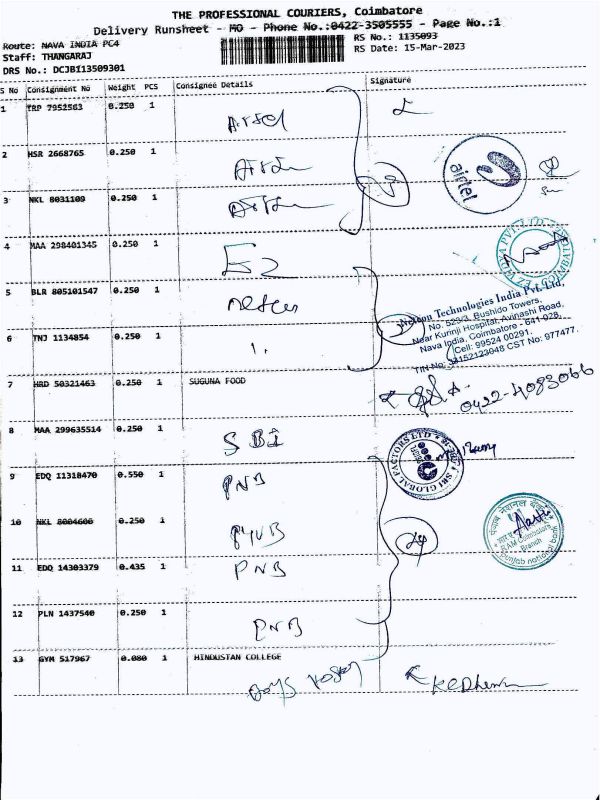 THE PROFESSIONAL COURIERS, Coimbatore
Delivery Runsheet - MO - Phone No.:0422-3505555 - Page No.:1
Route: NAVA INDIA PC4
RS No.: 1135093
Staff: THANGARAJ
RS Date: 15-Mar-2023
DRS No.: DCJB113509301
S No Consignment No Weight PCS Consignee Details Signature
1 TRP 7952563 0.250 1 Airtel
2 HSR 2668765 0.250 1 Airtel
airtel
3 NKL 8031109 0.250 1 Airtel
3
4 MAA 298401345 0.250 1 EZ
5 BLR 805101547 0.250 1 netcon
Netcon Technologies India Pvt. Ltd.,
No. 529/3, Bushido Towers,
Near Kurinji Hospital, Avinashi Road,
Nava India, Coimbatore - 641 028.
Cell: 99524 00291.
TIN No: 33152123048 CST No: 977477.
6 TNJ 1134854 0.250 1
7 HRD 50321463 0.250 1 SUGUNA FOOD
0422-4083066
8 MAA 299635514 0.250 1 SBI
SBI GLOBAL FACTORS LTD
9 EDQ 11318470 0.550 1 PNB
10 NKL 8004600 0.250 1 PNB
पंजाब नैशनल बैंक
Coimbatore
Branch
Punjab national bank
11 EDQ 14303379 0.435 1 PNB
12 PLN 1437540 0.250 1 PNB
13 GYM 517967 0.080 1 HINDUSTAN COLLEGE